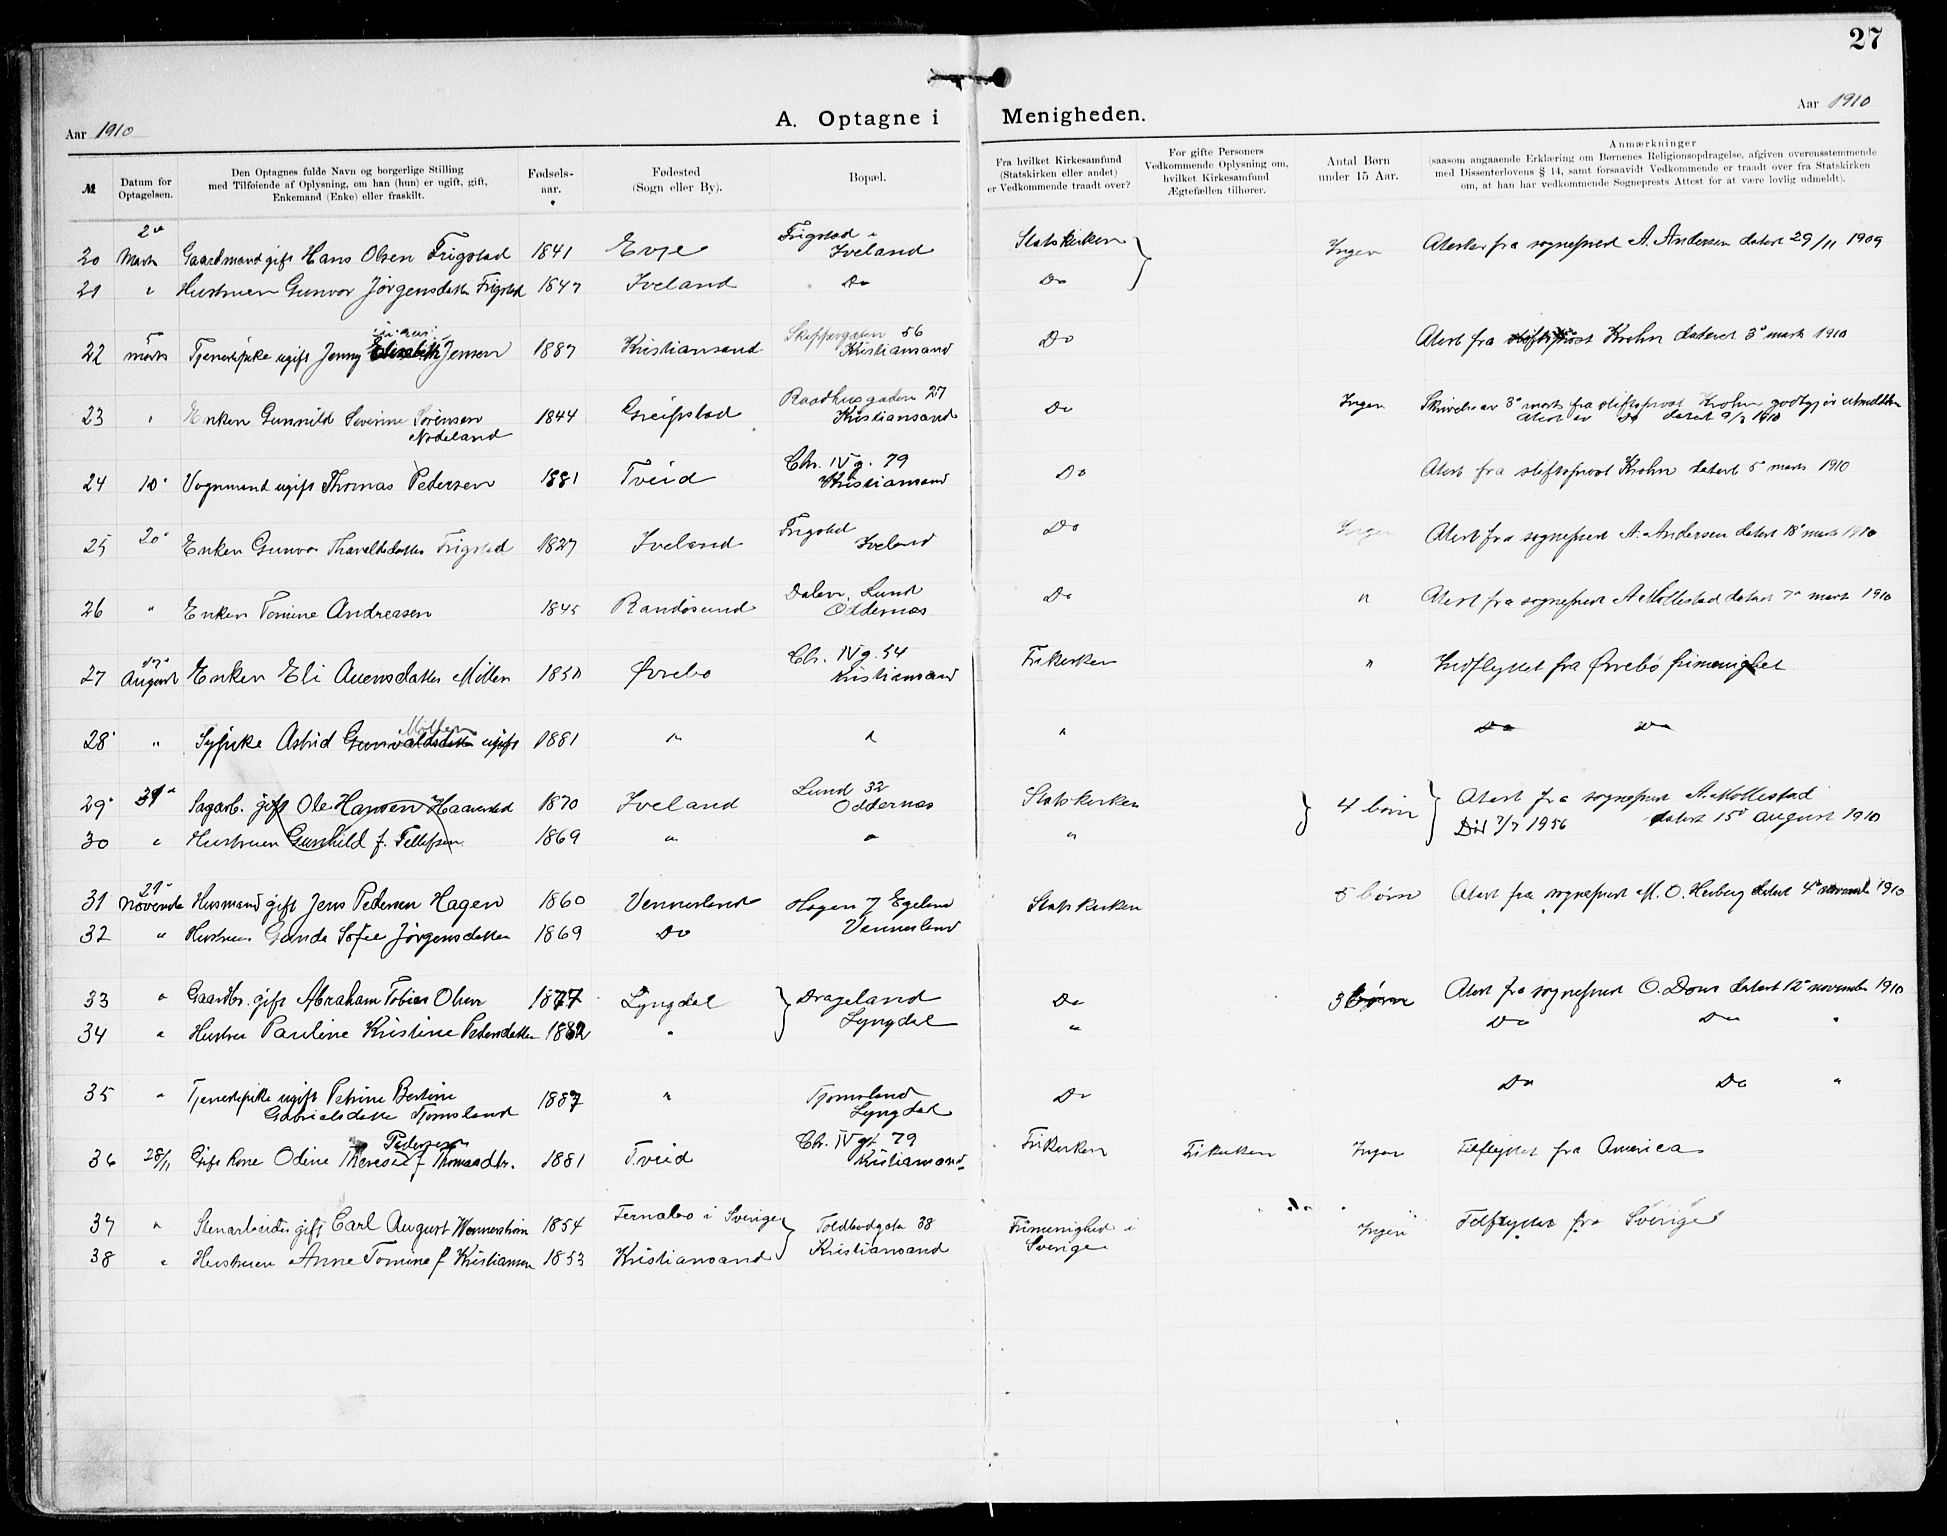 27
Aar 1910
A. Optagne i Menigheden.
Aar 1910
№
Datum for Optagelsen.
Den Optagnes fulde Navn og borgerlige Stilling
med Tilføiende af Oplysning, om han (hun) er ugift, gift,
Enkemand (Enke) eller fraskilt.
Fødsels-
aar.
Fødested
(Sogn eller By).
Bopæl.
Fra hvilket Kirkesamfund
(Statskirken eller andet)
er Vedkommende traadt over?
For gifte Personers
Vedkommende Oplysning om,
hvilket Kirkesamfund
Ægtefællen tilhører.
Antal Børn
under 15 Aar.
Anmærkninger
(saasom angaaende Erklæring om Børnenes Religionsopdragelse, afgiven overensstemmende
med Dissenterlovens § 14, samt forsaavidt Vedkommende er traadt over fra Statskirken
om, at han har vedkommende Sogneprests Attest for at være lovlig udmeldt).
20 Marts Gaardmand gift Hans Olsen Frigstad 1841 Evje Frigstad Iveland Statskirken Ingen Atester fra sogneprest A. Andersen datert 29/11 1909
21 " Hustruen Gunvor Jørgensdatter Frigstad 1847 Iveland Do Do
22 5 marts Tjenestepike ugift Jenny Jensen 1887 Kristiansand Skippergaten 56 Kristiansand Do Atest fra stiftsprost Krohn dateret 3 marts 1910
23 " Enken Gunnild Severine Sørensen Nodeland 1844 Greipstad Raadhusgaden 27 Kristiansand Do Ingen Skrivelse av 3 marts fra stiftsprost Krohn
Atest av Do datert 9/3 1910
24 10 Vognmand ugift Thomas Pedersen 1881 Tveid Chr. IV g. 79 Kristiansand Do Atest fra stiftsprost Krohn datert 5 marts 1910
25 20 Enken Gunvor Thavaldsdatter Frigstad 1827 Iveland Frigstad Iveland Do Ingen Atest fra sogneprest A. Andersen datert 18 marts 1910
26 " Enken Tomine Andreasen 1845 Randøsund Dalen, Lund Oddernes Do " Atest fra sogneprest A. Mollestad datert 7 marts 1910
27 August Enken Eli Auensdatter Mollen 1850 Øvrebo Chr. IV g. 54 Kristiansand Frikirken " Indflyttet fra Øvrebø frimenighet
28 " Sypike Astrid Gunvaldsdatter Mollen ugift 1881 " " " Do Do
29 31 Sagarb. gift Ole Hansen Haaverstad 1870 Iveland Lund 32 Oddernes Statskirken 4 børn Atest fra sogneprest A. Mollestad
30 " Hustruen Gunhild f. Tellefsen 1869 " " " Død 7/7 1956 datert 15 august 1910
31 21 November Husmand gift Jens Pedersen Hagen 1860 Vennesland Hagen Egeland Vennesland Statskirken 5 børn Atest fra sogneprest M. O. Herberg datert 4 november 1910
32 " Hustruen Gunda Sofie Jørgensdatter 1869 Do
33 " Gaardbr. gift Abraham Tobias Olsen 1877 Lyngdal Drageland Lyngdal Do 3 børn Atest fra sogneprest O. Dons datert 12 november 1910
34 " Hustru Pauline Kristine Pedersdatter 1882 " " Do Do "
35 " Tjenestepike ugift Petrine Bertine Gabrielsdatter Tjomsland 1887 " Tjomsland Lyngdal Do Do Do "
36 28/11 Gift Kone Odine Therese Pedersen f. Thomasdtr. 1881 Tveid Chr. IV gt 79 Kristiansand Frikirken Frikirken Ingen Tilflyttet fra America
37 " Stenarbeider gift Carl August Wennerstrøm 1854 Fernabo i Sverige Toldbodgata 38 Kristiansand Frimenighed i Sverige " Do " Ingen Tilflyttet fra Sverige
38 " Hustruen Anne Tomine f Kristiansen 1853 Kristiansand